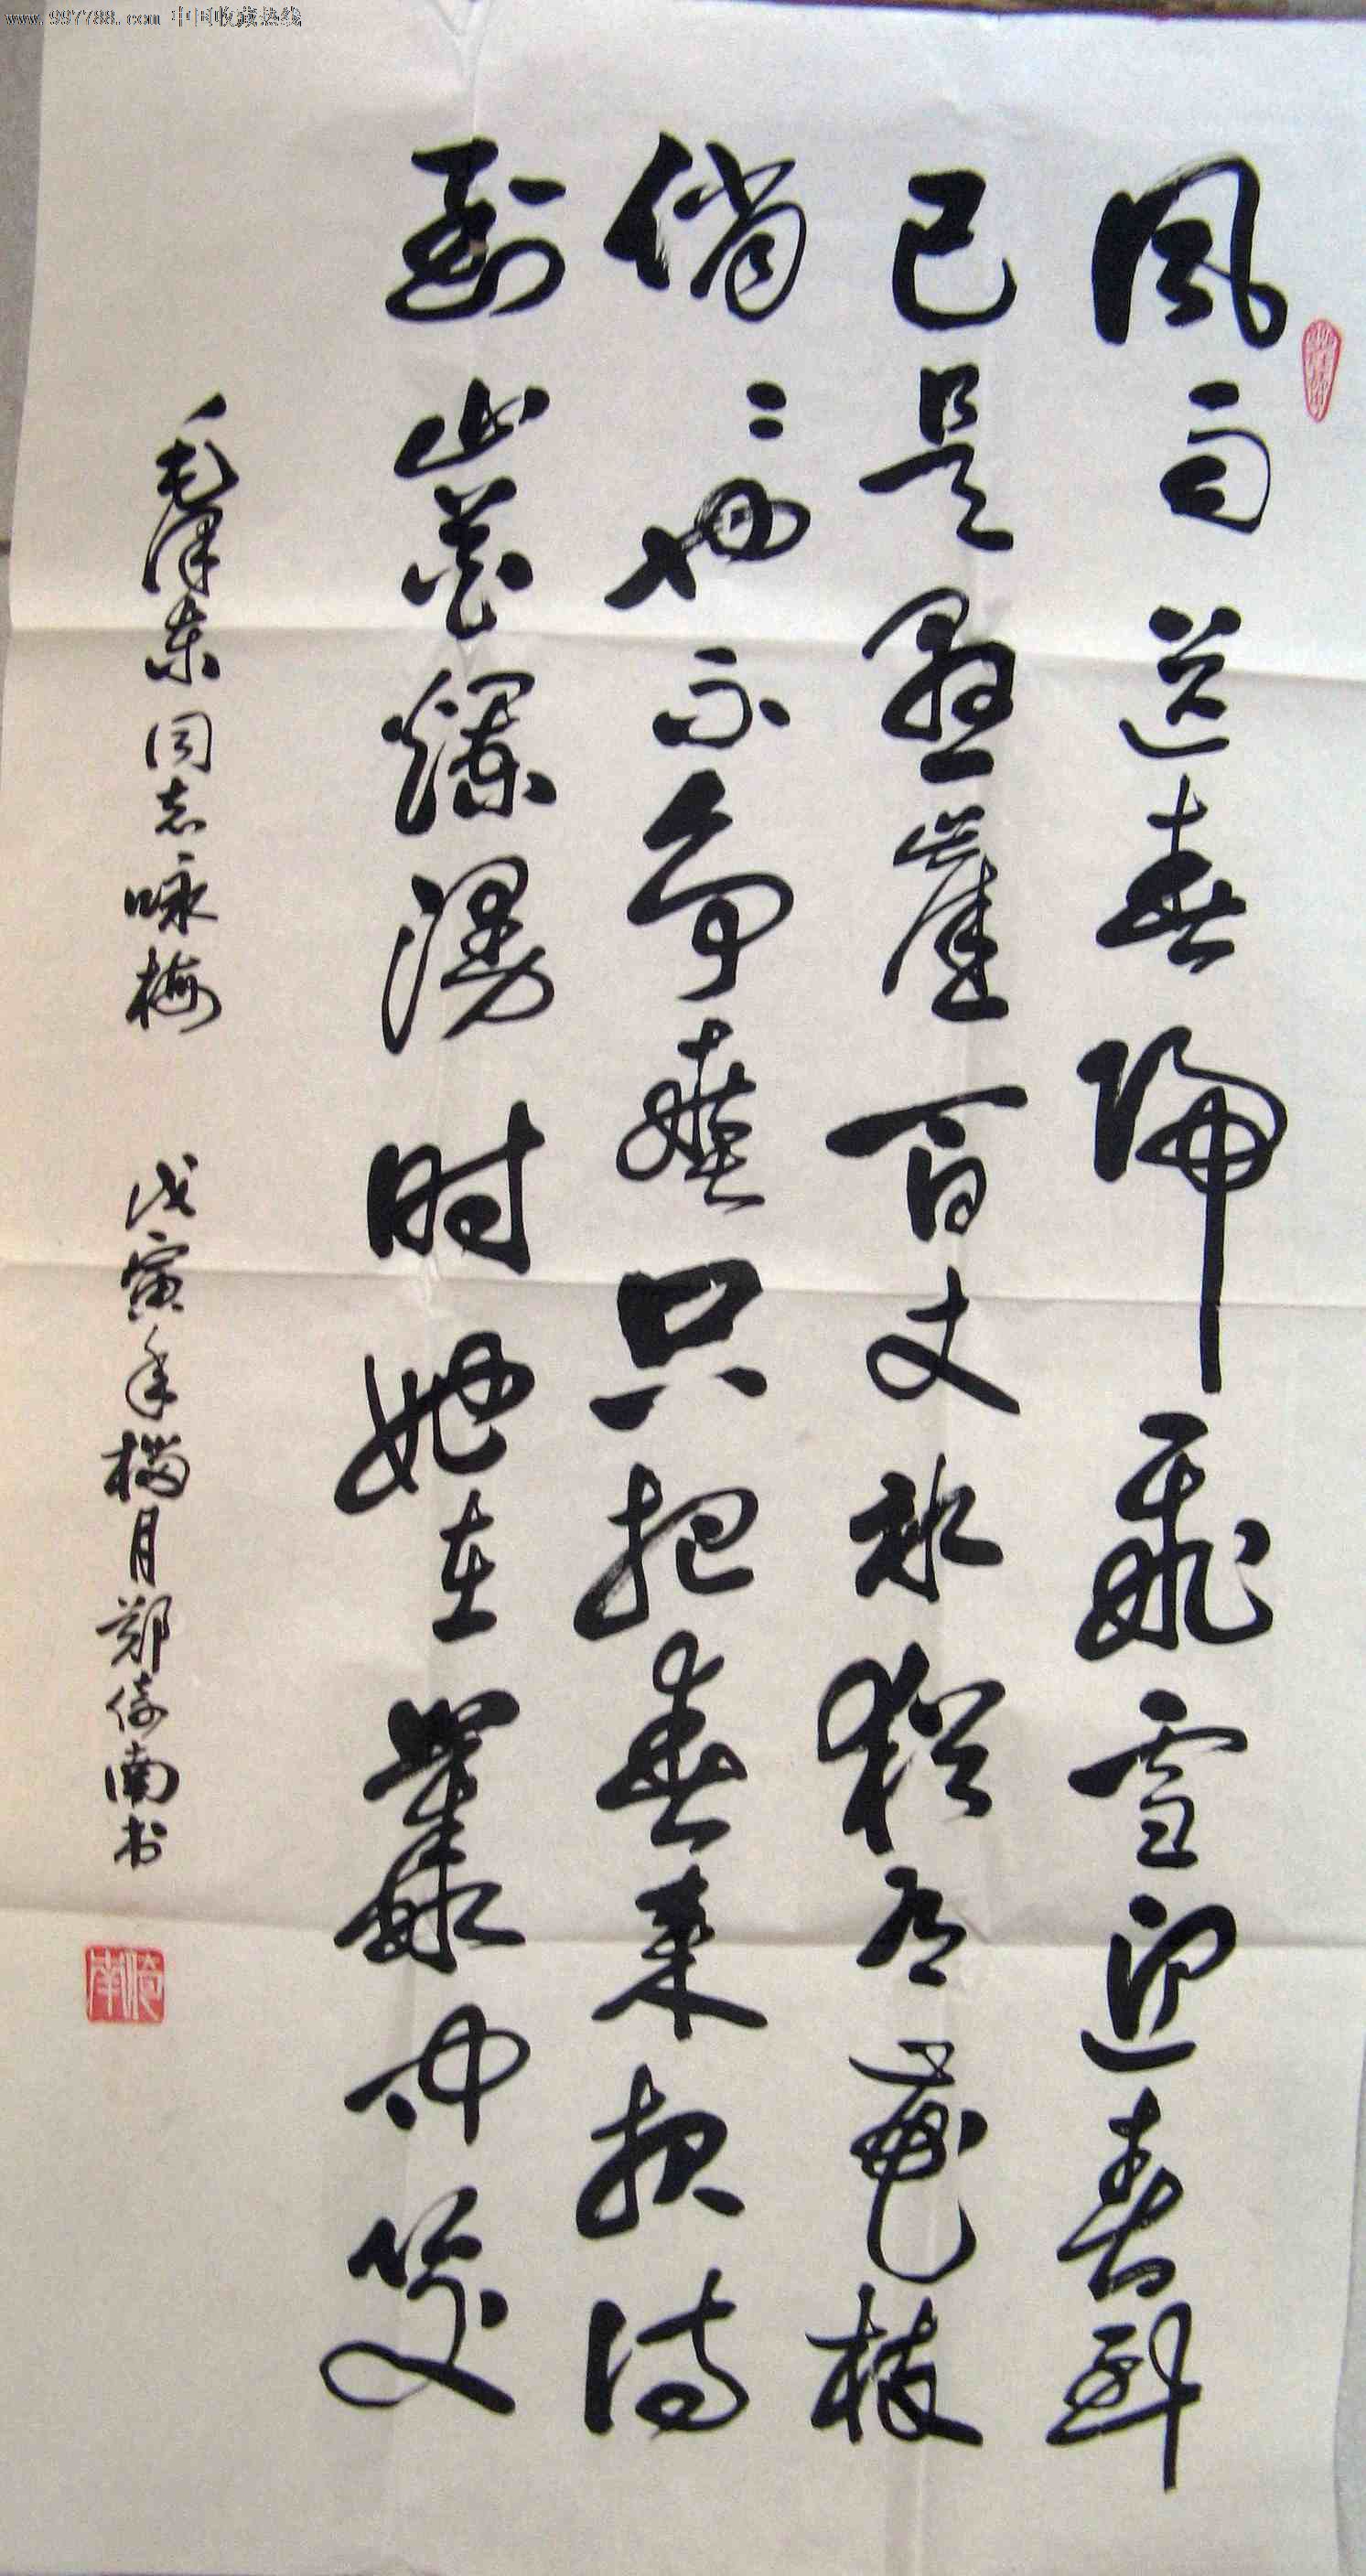 www.997788.com 中国收藏热线
風雨送春歸飛雪迎春到
已是懸崖百丈冰猶有花枝
俏々也不爭春只把春來報待
到山花爛漫时她在叢中笑
毛泽东同志咏梅 戊寅年腊月郑倚南书